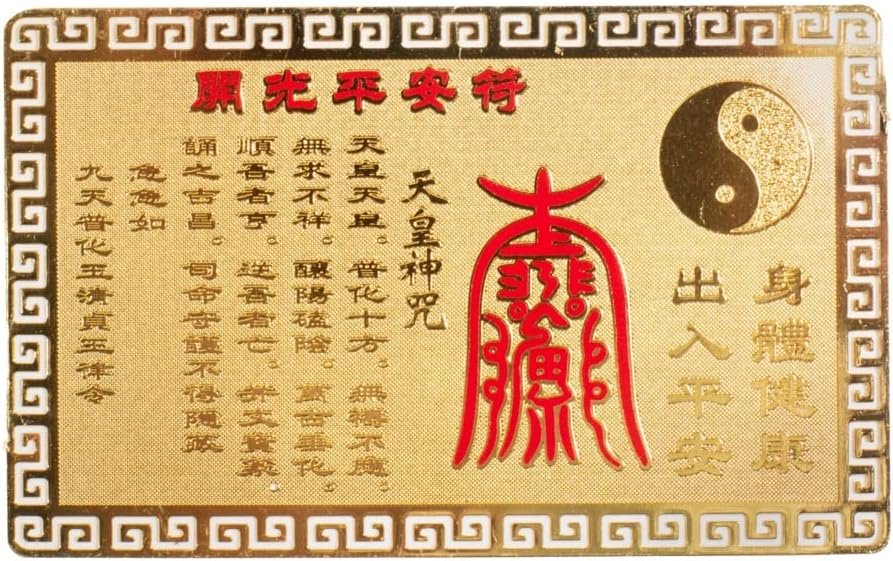 開光平安符
身體健康
出入平安
天皇神咒
天皇天皇。普化十方。無禱不應
無求不祥。釀陽磕陰。萬古垂化。
順吾者亨。逆吾者亡。
誦之吉昌。司命守護不得隱藏
急急如
九天普化玉清貞王律令